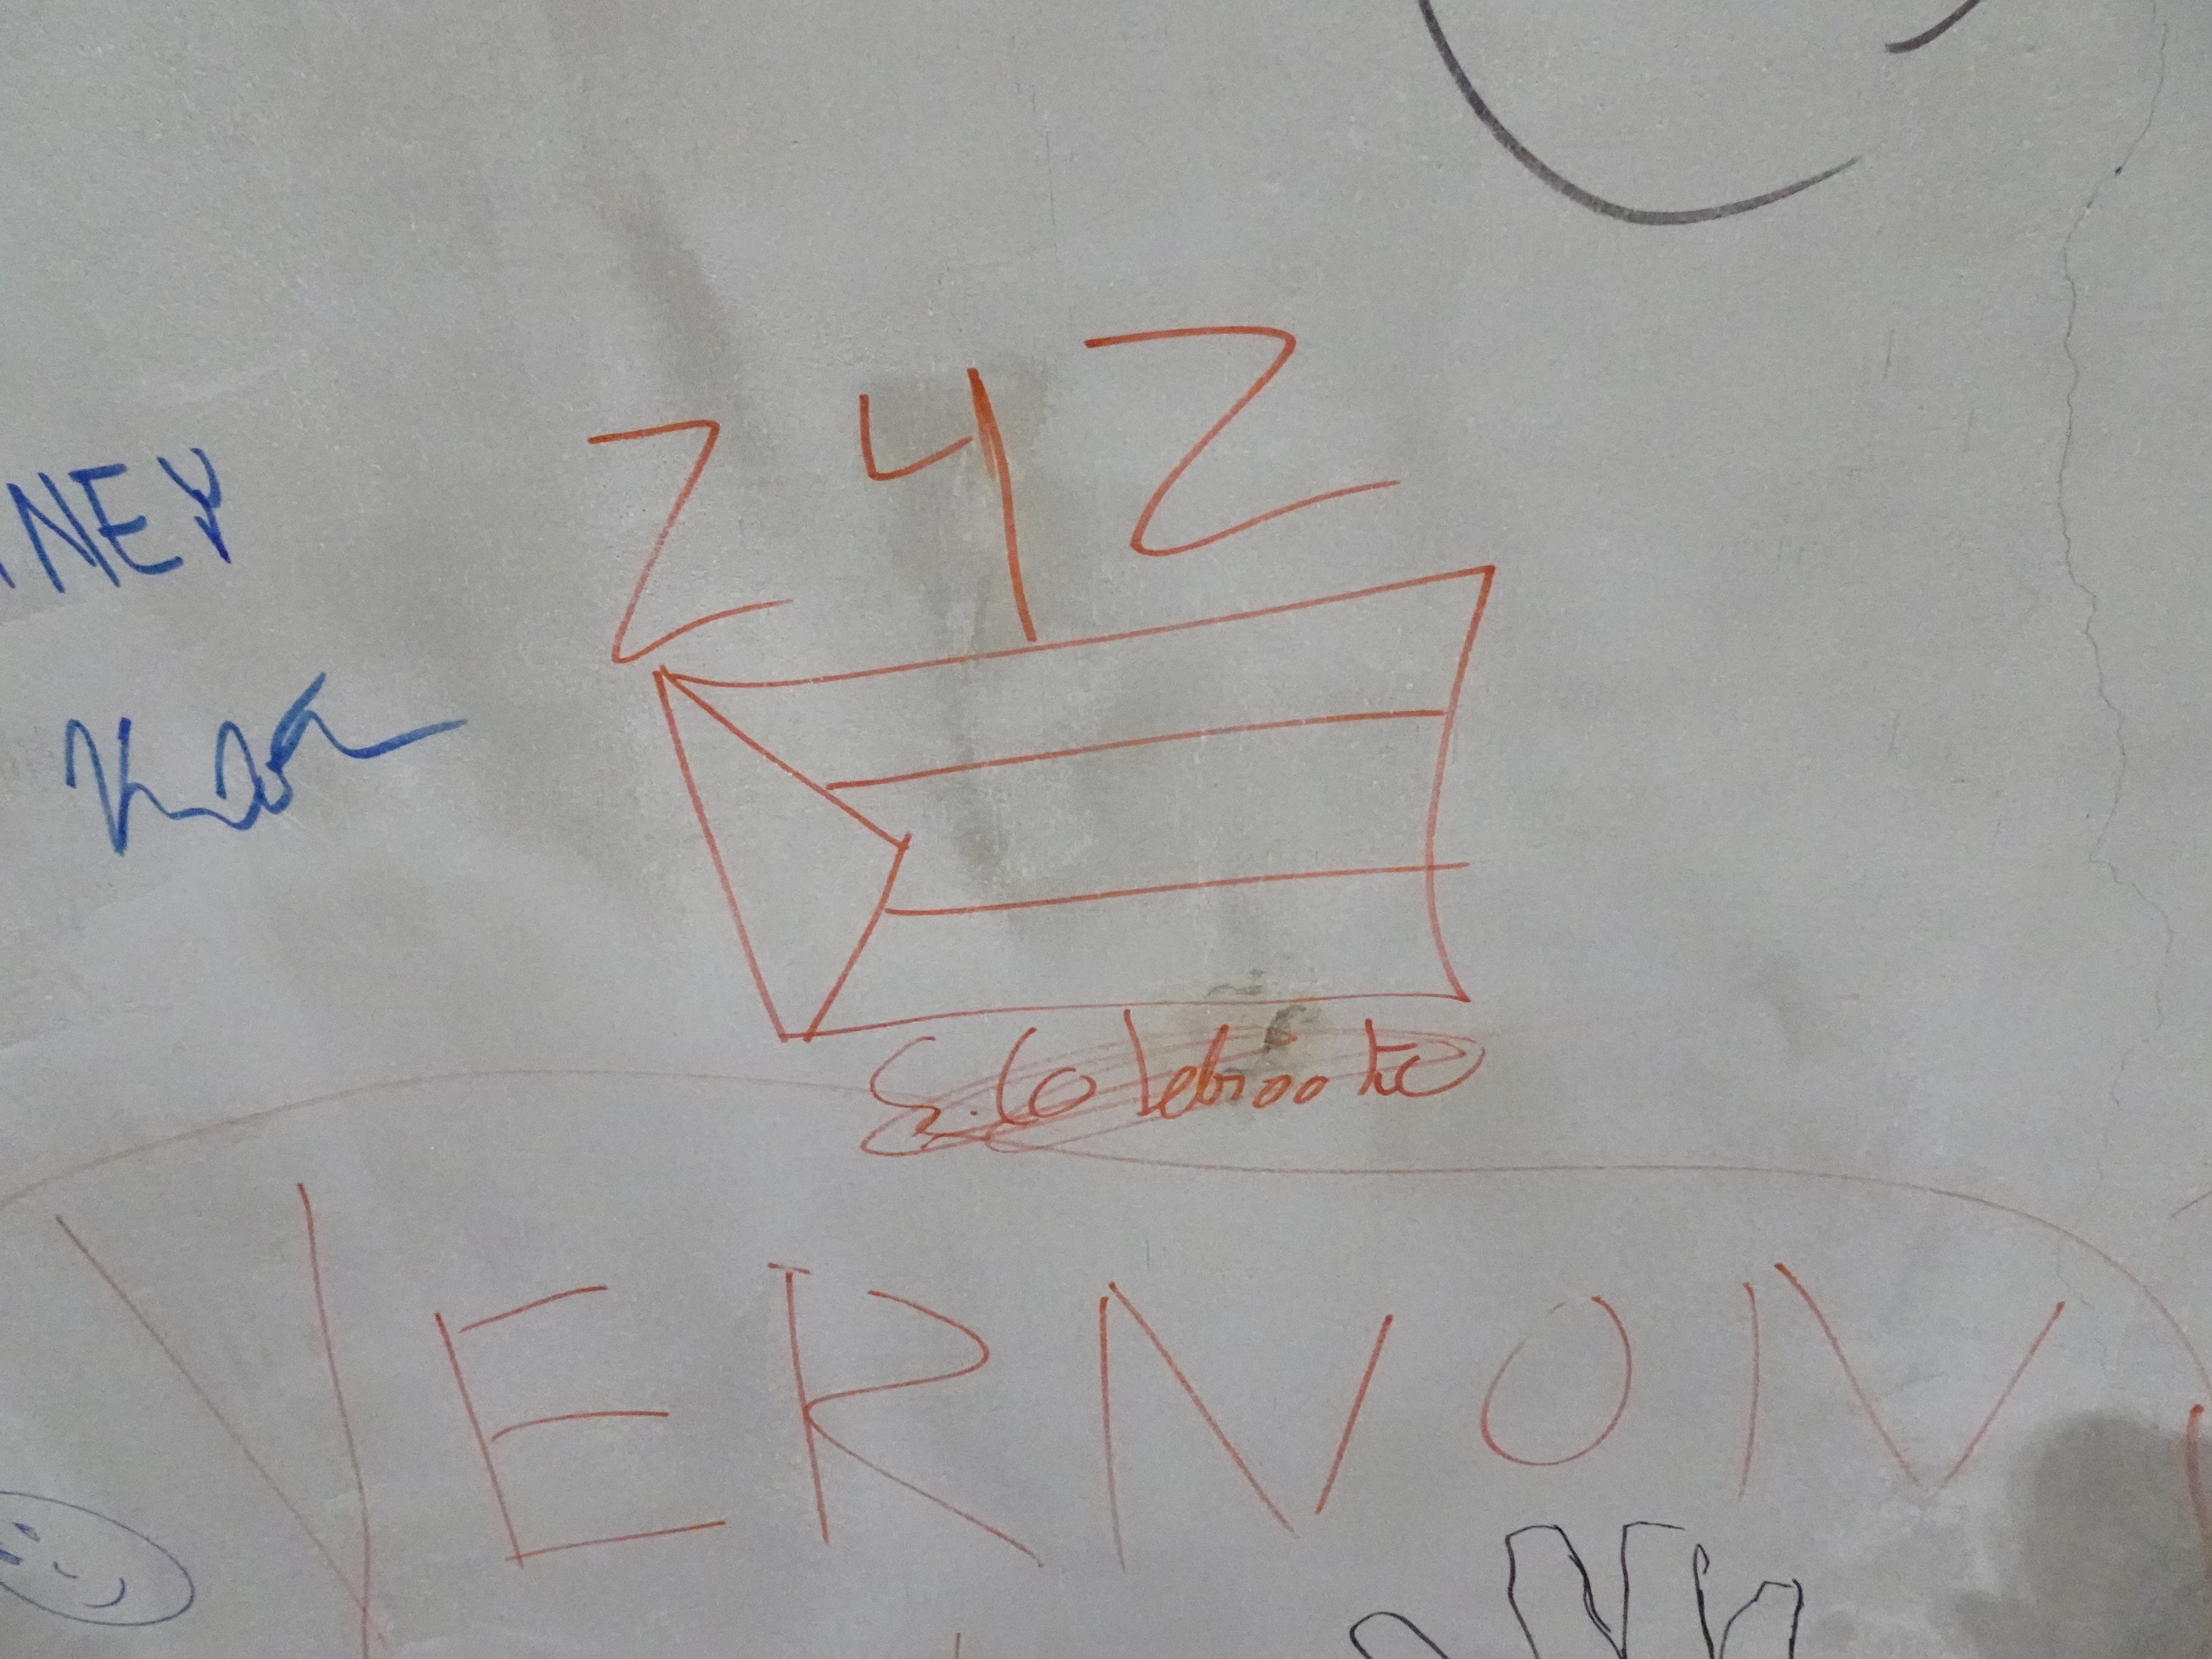 NEY
242
E. Colebrooke
VERNON